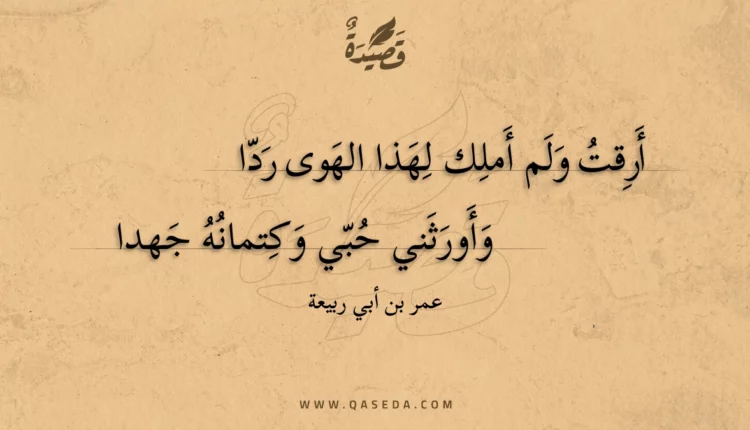 قَصِيْدَةٌ
أَرِقتُ وَلَم أَملِك لِهَذا الهَوى رَدّا
وَأَورَثَني حُبّي وَكِتمانُهُ جَهدا
عمر بن أبي ربيعة
WWW.QASEDA.COM